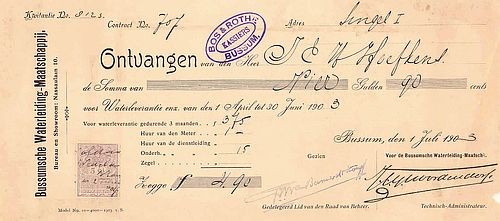 Kwitantie No. 8123.
Contract No. 707
Adres Singel I
BOS & ROTH
KASSIERS
BUSSUM.
Ontvangen van den Heer
de Somma van Gulden 90 cents
voor Waterleverantie enz. van den 1 April tot 30 Juni 1903
Voor waterleverantie gedurende 3 maanden . f 3.75
Huur van den Meter
Huur van de dienstleiding
Onderh. 15
Zegel
Zegge f 4.90
Bussum, den 1 Juli 1903
Gezien
Voor de Bussumsche Waterleiding-Maatschij.
Gedelegeerd Lid van den Raad van Beheer.
Technisch-Administrateur.
Bussumsche Waterleiding-Maatschappij,
Bureau en Showroom: Nassaulaan 10.